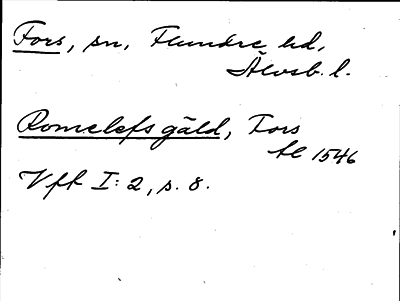 Fors, sn, Flundre hd,
Älvsb. l.
Romelefs gäld, Fors
tl 1546
Vft I: 2, s. 8.